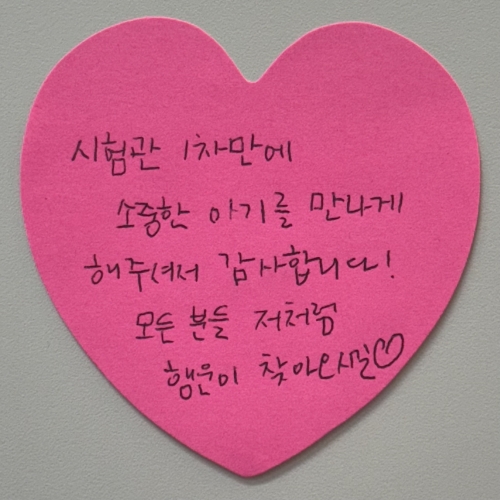 시험관 1차만에
소중한 아기를 만나게
해주셔서 감사합니다!
모든 분들 저처럼
행운이 찾아오시길♡